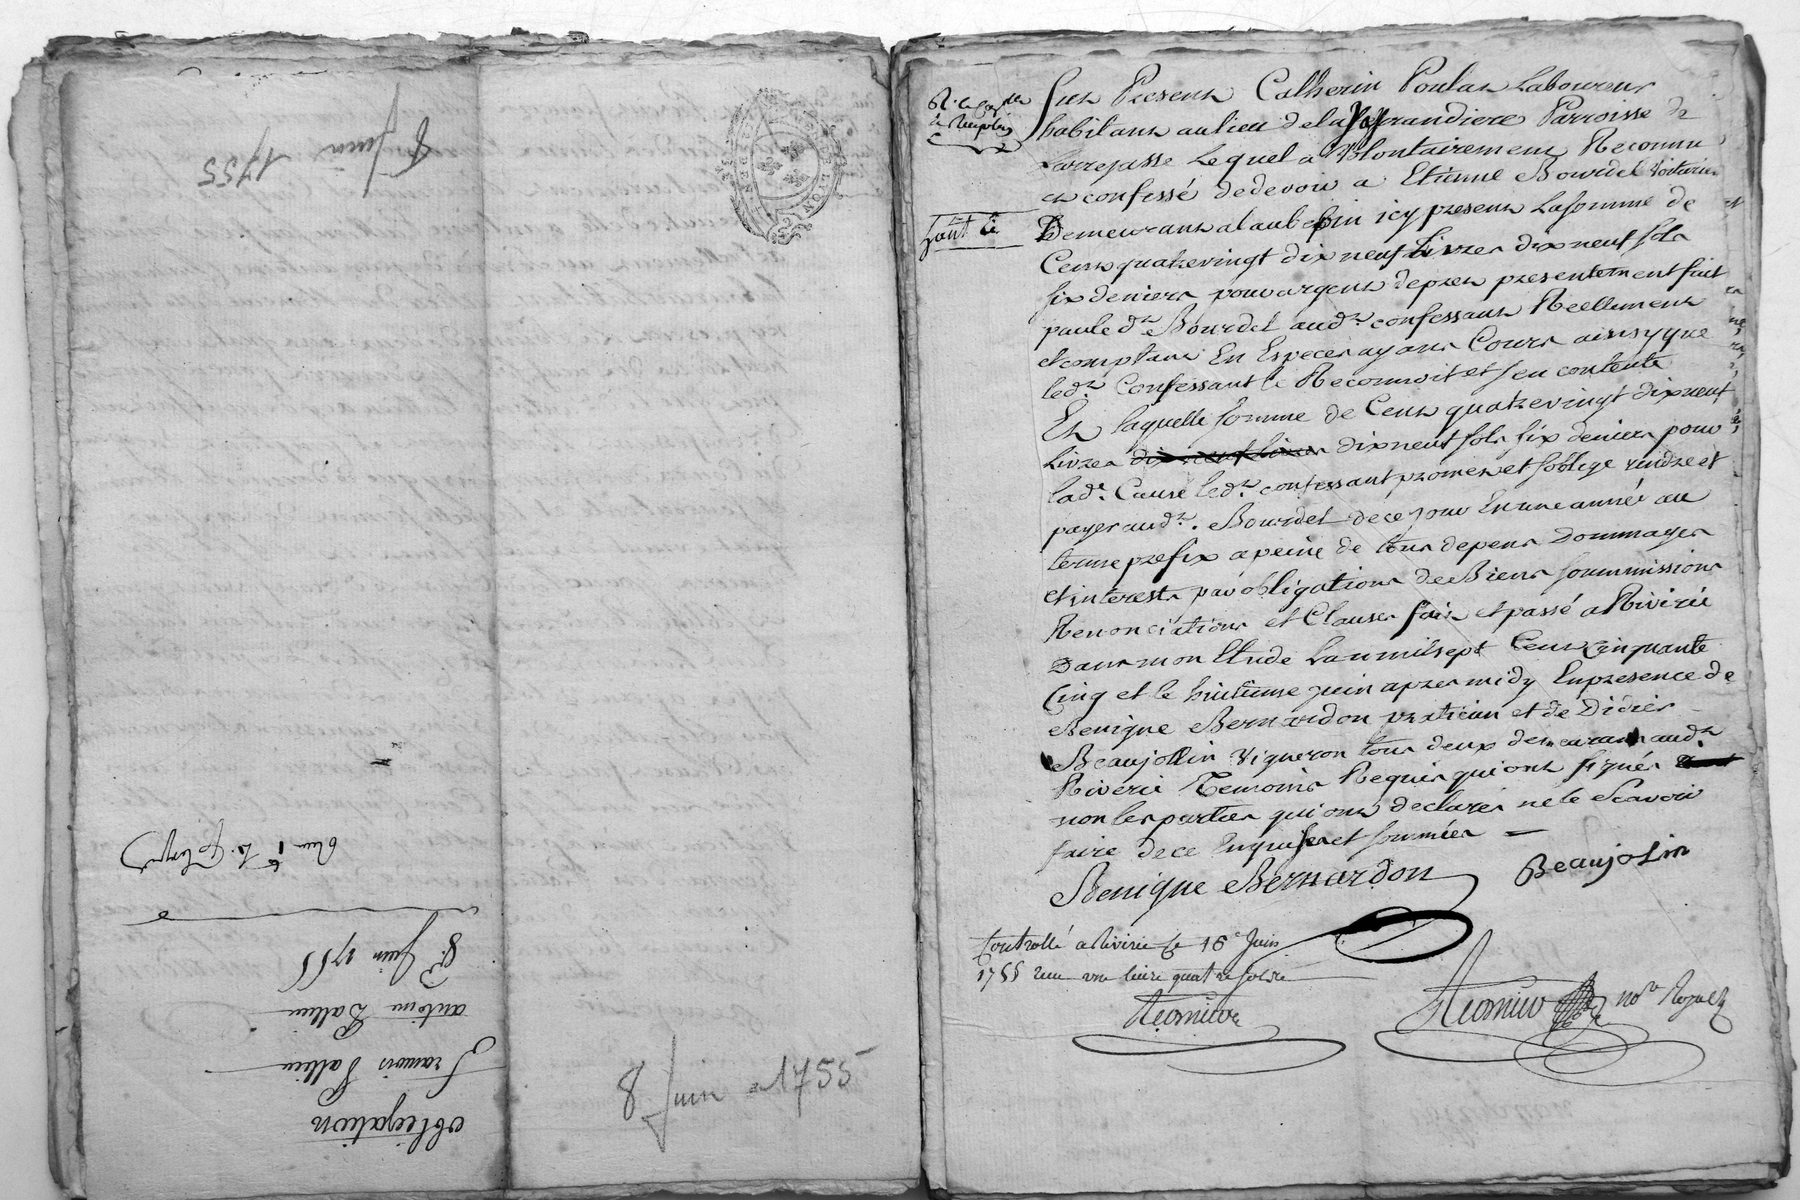 8 Juin 1755
obligation
francois Pallien
antoine Pallien
8e Juin 1755
8 Juin 1755
fut Present Catherin Poulat Laboureur
habitant au lieu de la grandiere Parroisse de
Larrejasse Lequel a Volontairement Reconnu
et confessé de devoir a Etienne Bourdel Voiturier
Demeurant a laubepin icy present La somme de
Cent quatrevingt dix neuf Livres dix neuf sols
six deniers pour argent de prez presentement fait
par led.t Bourdel aud.t confessant Reellement
et comptant En Especes ayant Cours ainsy que
led.t Confessant le Reconnoit et s'en contente
Et laquelle somme de Cent quatrevingt dix neuf
Livres dix neuf Livres dix neuf sols six deniers pour
lad.e Cause led.t confessant promet et soblige rendre et
payer aud.t Bourdel de ce jour En une année au
terme prefix a peine de tous depens Dommages
et interests par obligations de Biens soummissions
Renonciations et Clauses fait et passé a Riverie
Dans mon Etude Lan mil sept Cent Cinquante
Cinq et le huitieme juin apres midy En presence de
Benigne Bernardon praticien et de Didier
Beaujollin Vigneron tous deux demeurant aud.t
Riverie Temoins Requis qui ont signés
non les parties qui ont declarés ne le Scavoir
faire de ce Enquises et sommées
Benigne Bernardon Beaujolin
Controllé a Riverie le 16e Juin
1755 reçu une livre quatre sols
no.re Royal